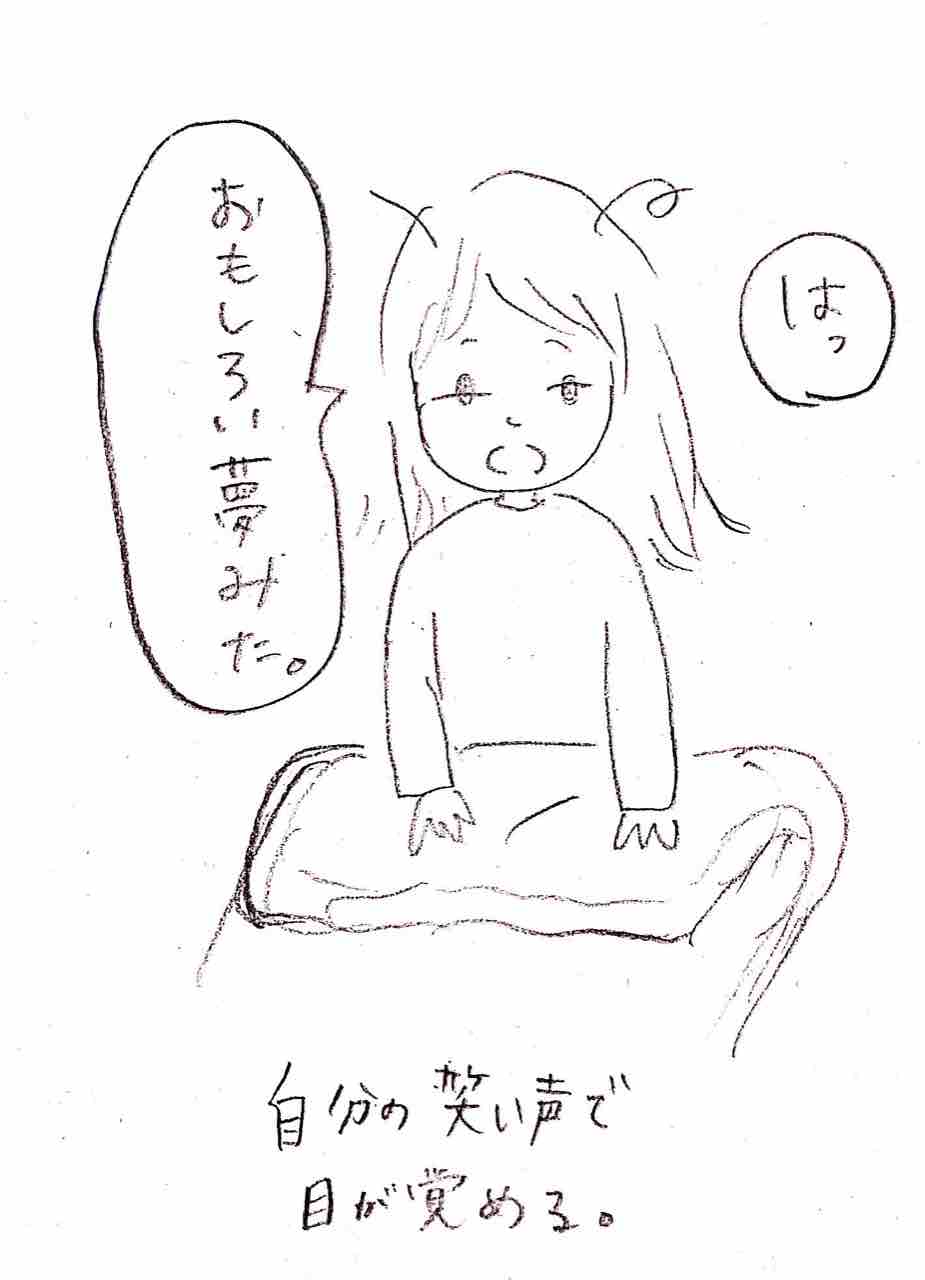 はっ
おもしろい夢みた。
自分の笑い声で
目が覚める。